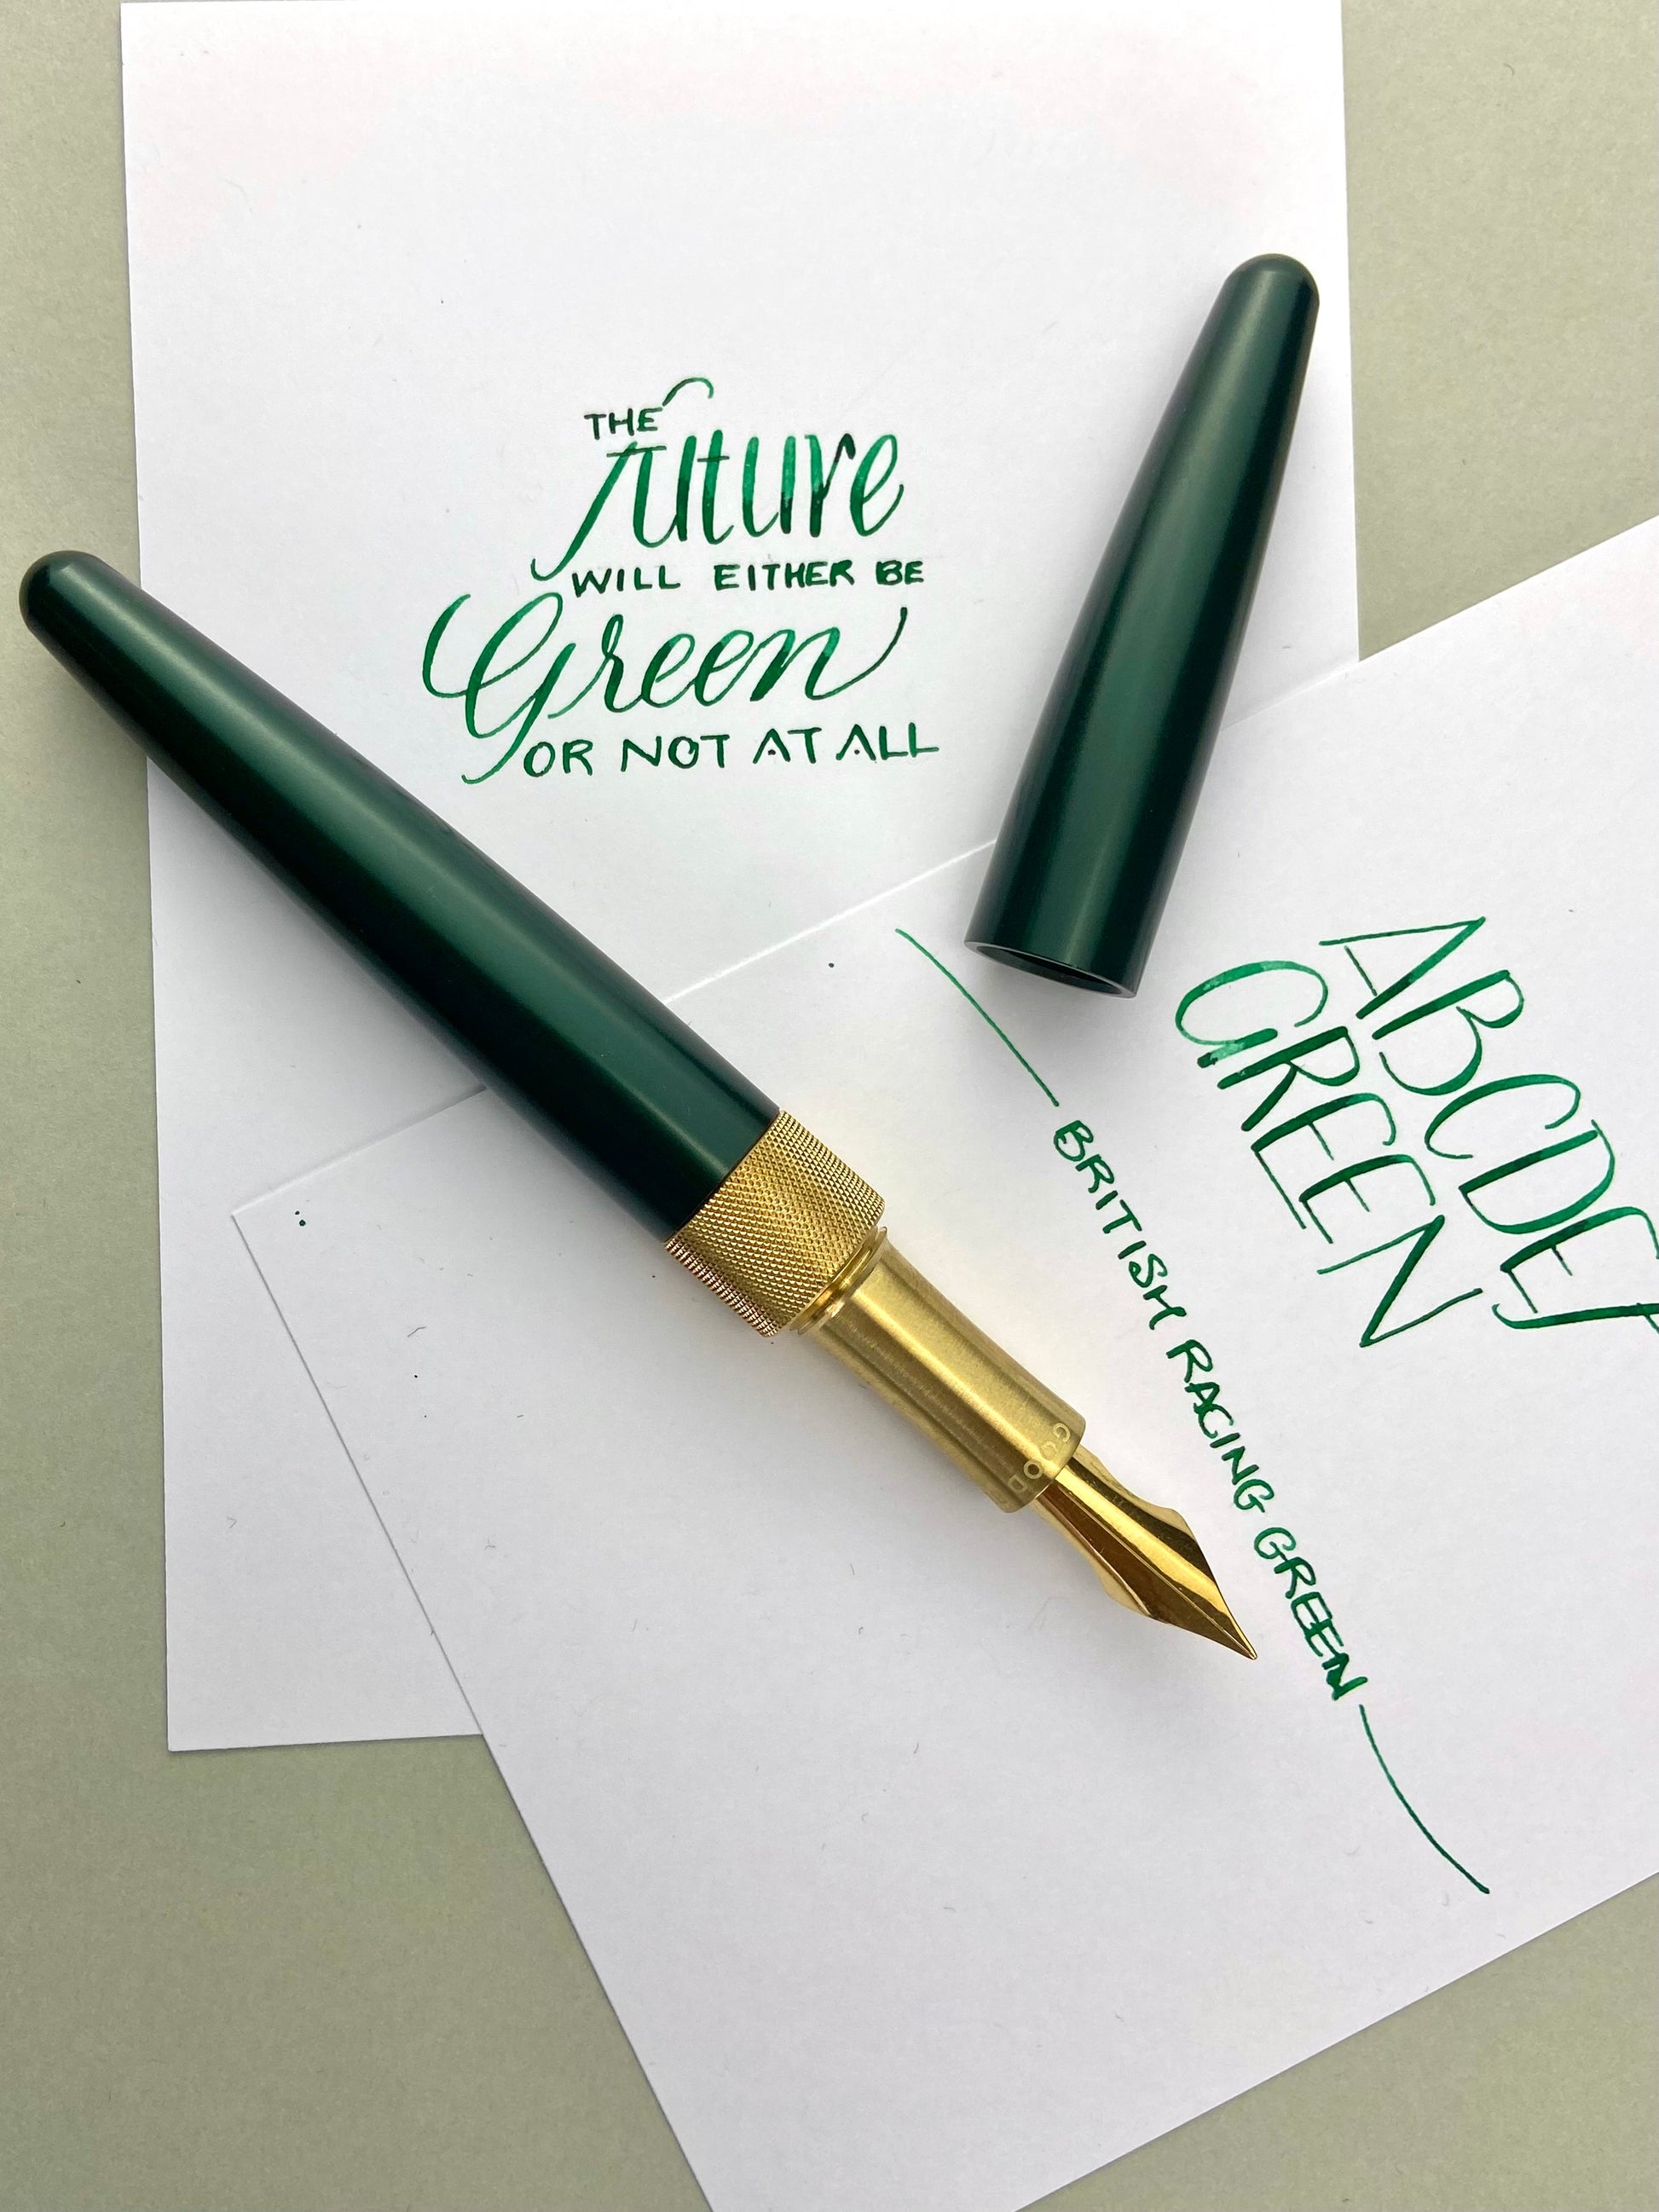 THE
future
WILL EITHER BE
Green
OR NOT AT ALL
ABCDEF
GREEN
BRITISH RACING GREEN
GOOD